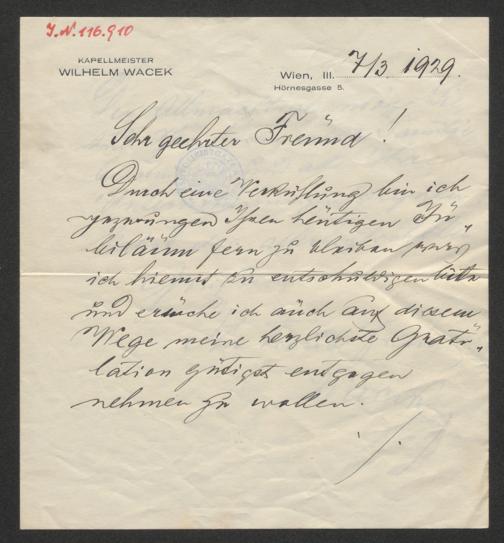 I.N. 116.910
KAPELLMEISTER
WILHELM WACEK
Wien, III. 7/3 1929.
Hörnesgasse 5.
Sehr geehrter Freund!
Durch eine Verkühlung bin ich
gezwungen Ihren heutigen Ju„
biläum fern zu bleiben was
ich hiemit zu entschuldigen bitte
und ersuche ich auch auf diesem
Wege meine herzlichste Gratu„
lation gütigst entgegen
nehmen zu wollen.
/.